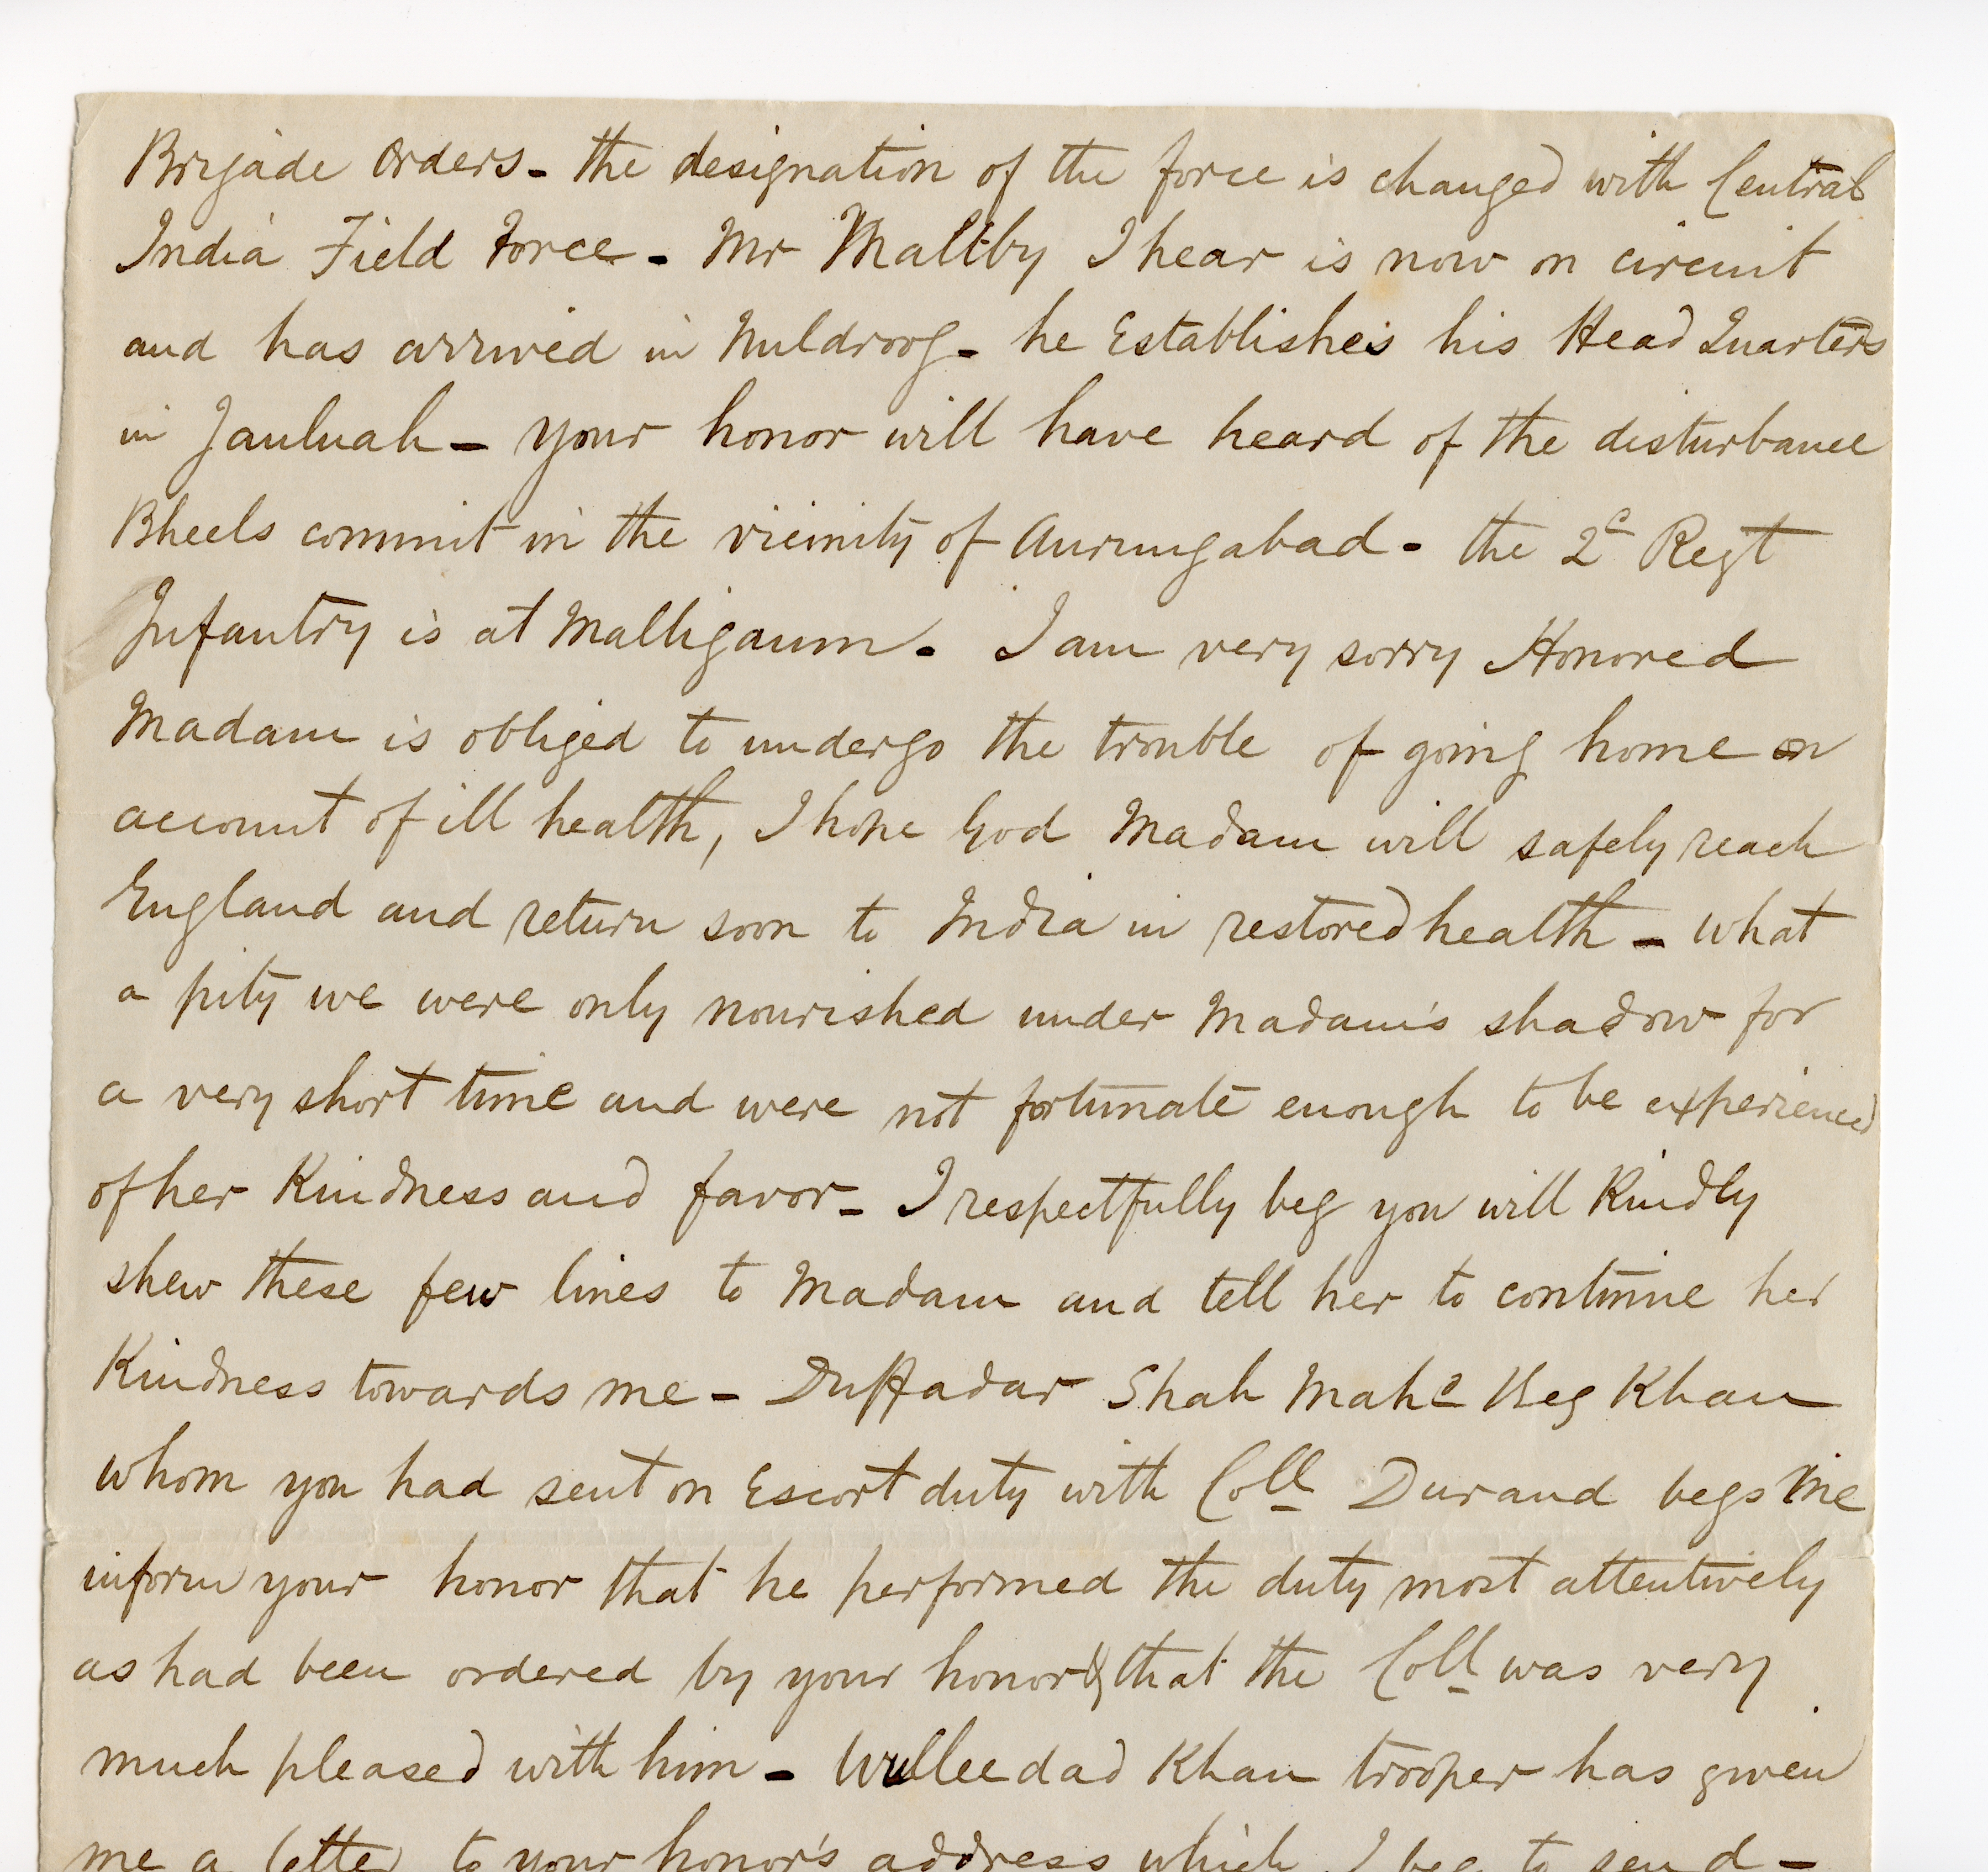 Brigade Orders - the designation of the force is changed with Central
India Field Force - Mr Maltby I hear is now on circuit
and has arrived in Nuldroog - he Establishes his Head Quarters
in Jaulnah - your honor will have heard of the disturbance
Bheels commit in the vicinity of Aurungabad - the 2d Regt
Infantry is at Malligaum - I am very sorry Honored
Madam is obliged to undergo the trouble of going home on
account of ill health, I hope God Madam will safely reach
England and return soon to India in restored health - what
a pity we were only nourished under Madam's shadow for
a very short time and were not fortunate enough to be experienced
of her Kindness and favor - I respectfully beg you will Kindly
shew these few lines to Madam and tell her to continue her
Kindness towards me - Duffadar Shah Mahd Beg Khan
whom you had sent on Escort duty with Coll Durand begs me
inform your honor that he performed the duty most attentively
as had been ordered by your honor & that the Coll was very
much pleased with him - Wulleedad Khan trooper has given
me a letter to your honor's address which I beg to send -